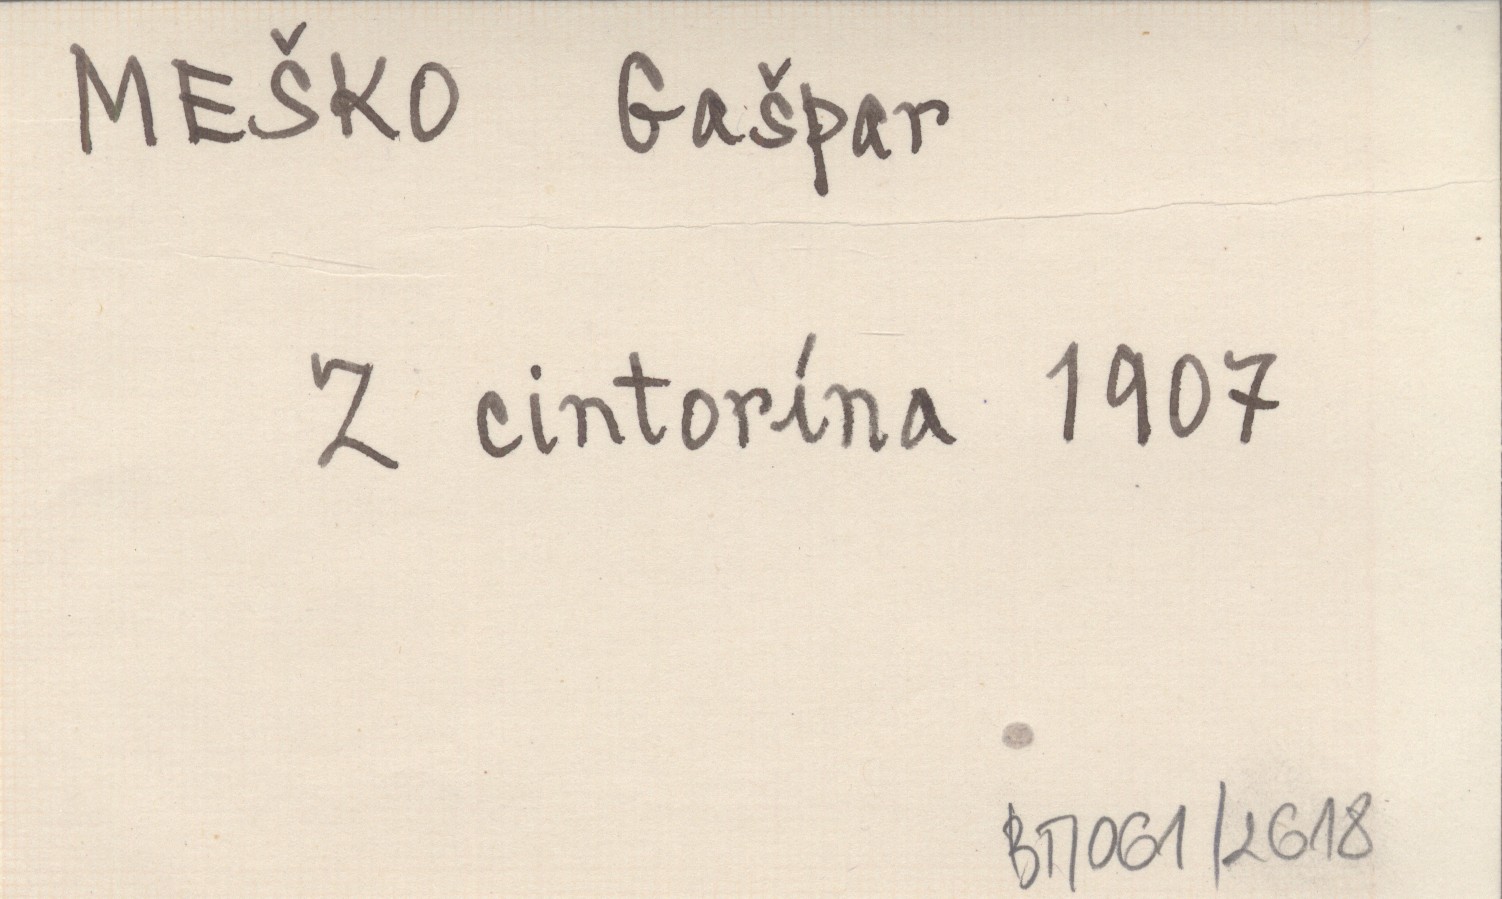 MEŠKO Gašpar
Z cintorína 1907
ВП061/2618